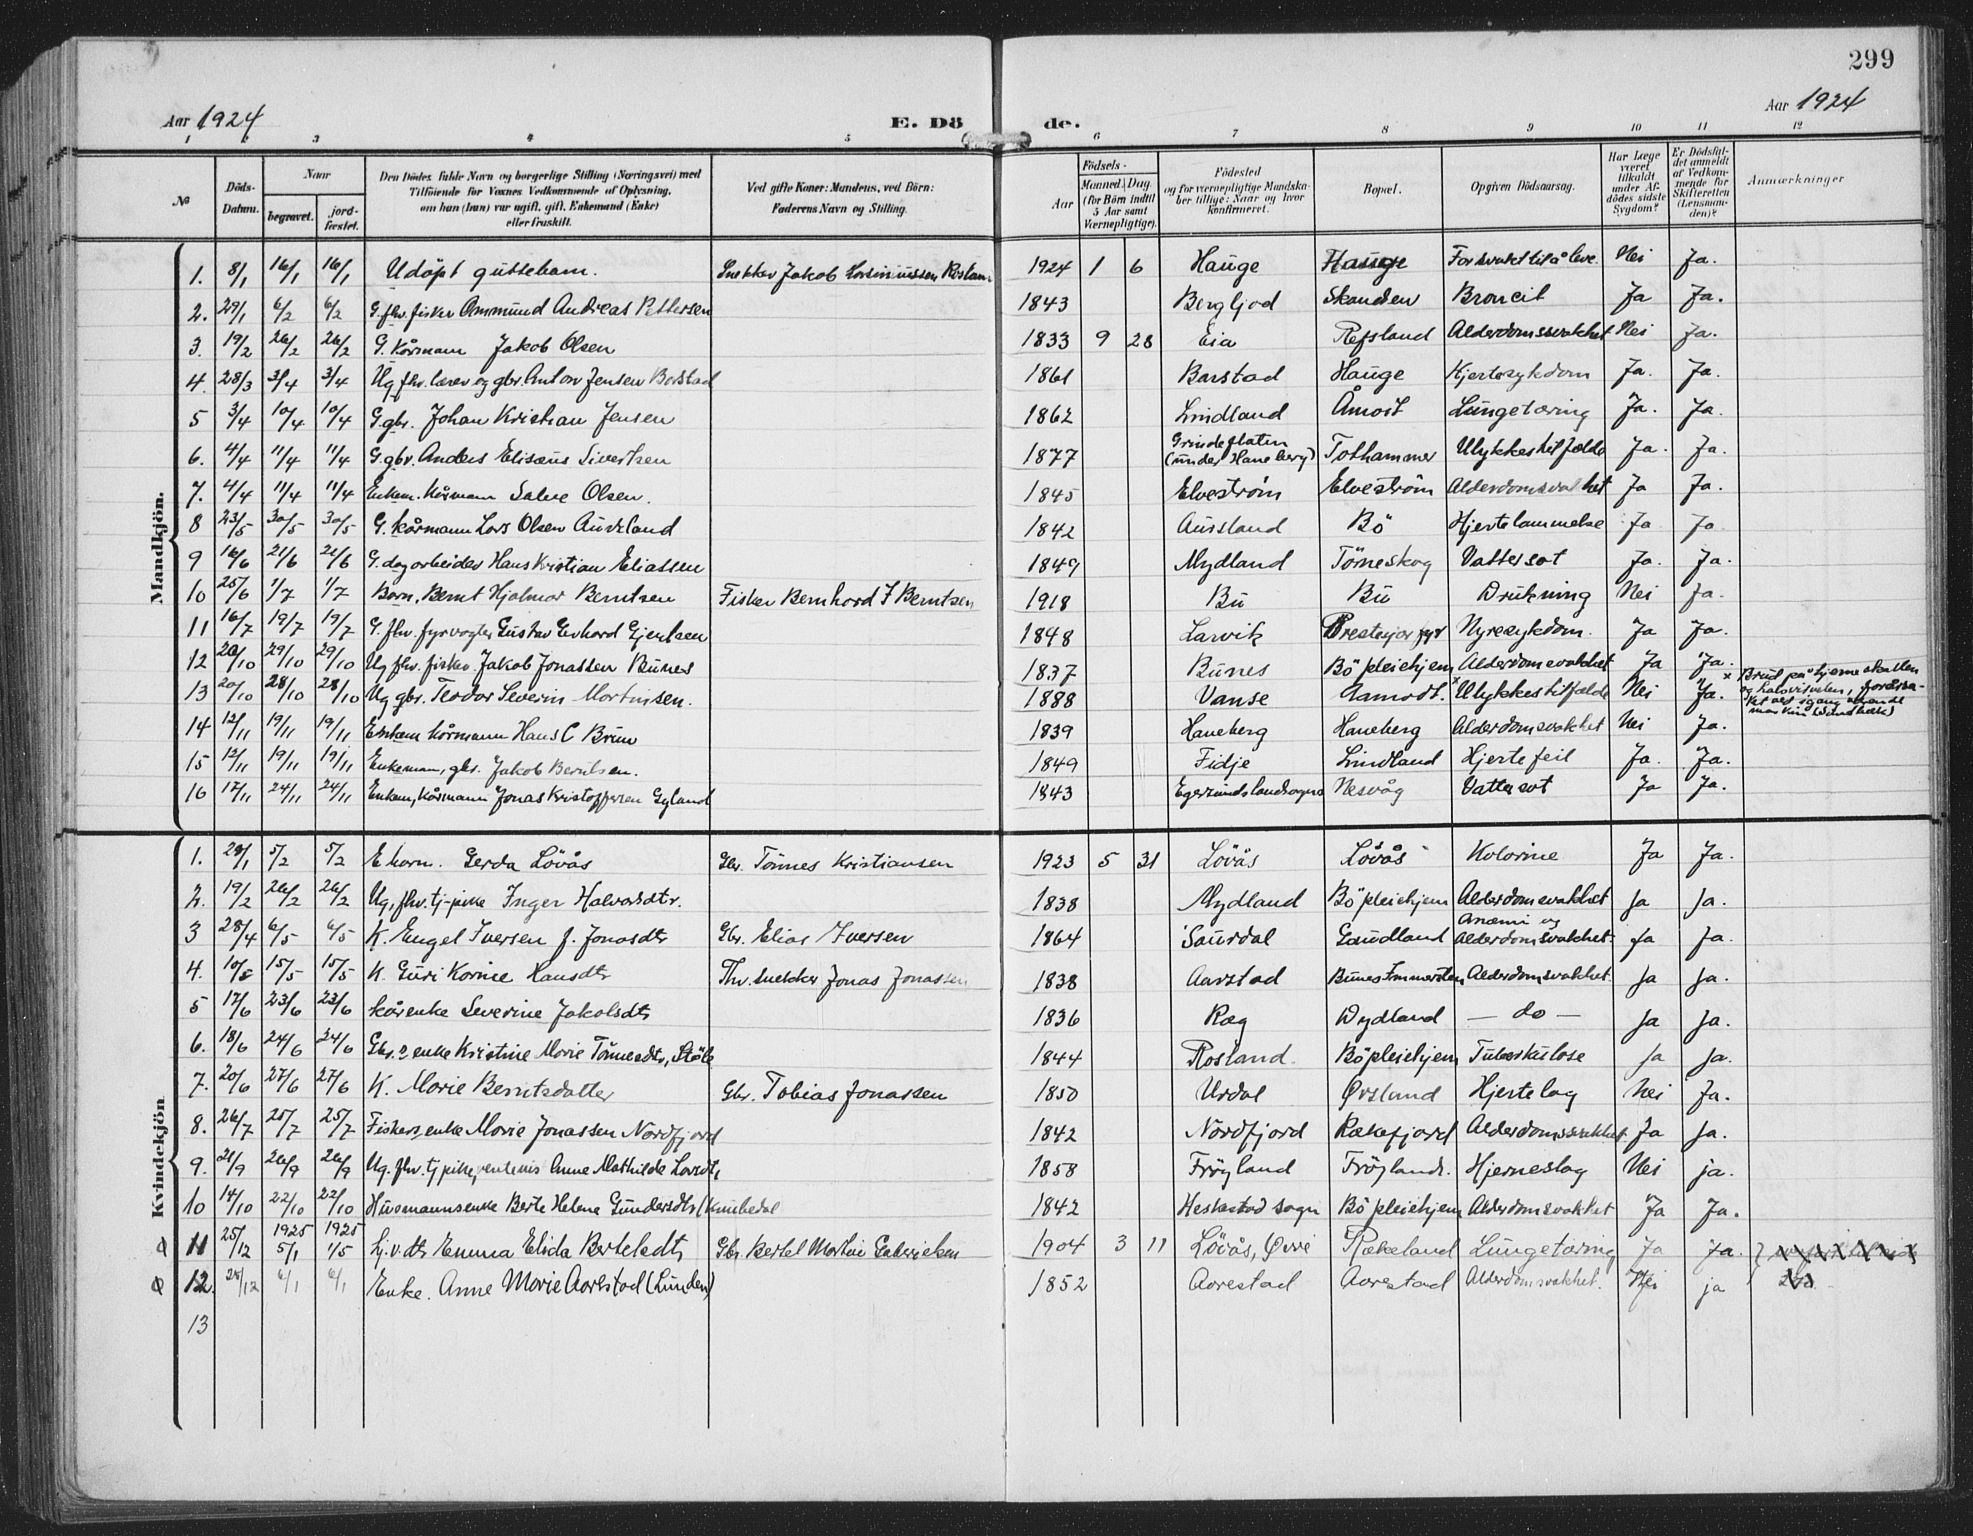 299
Aar 1924
E. Döde.
Aar 1924
1 2 3 4 5 6 7 8 9 10 11 12
№
Döds-Datum.
Naar
begravet.
jord-fæstet.
Den Dödes fulde Navn og borgerlige Stilling (Næringsvei) med
Tilföiende for Voxnes Vedkommende af Oplysning,
om han (hun) var ugift, gift, Enkemand (Enke)
eller fraskilt.
Ved gifte Koner: Mandens, ved Börn:
Faderens Navn og Stilling.
Födsels-
Aar
Maaned. Dag
(for Börn indtil
5 Aar samt
Værnepligtige).
Födested
og for værnepligtige Mandska-
ber tillige: Naar og hvor
konfirmeret.
Bopæl.
Opgiven Dödsaarsag.
Har Læge
været
tilkaldt
under Af-
dödes sidste
Sygdom?
Er Dödsfal-
det anmeldt
af Vedkom-
mende for
Skifteretten
(Lensman-
den)?
Anmærkninger
Mandkjön.
1. 8/1 16/1 16/1 Udöpt guttebarn. Snekker Jakob 1924 1 6 Hauge Hauge For svakt til å leve. Nei Ja.
2. 29/1 6/2 6/2 G. fhv. fisker Ommund Andreas Pettersen 1843 Bergljod Skanden Broncit Ja Ja.
3. 19/2 26/2 26/2 G. Kårmann Jakob Olsen 1833 9 28 Eia Refsland Alderdomssvakhet Nei Ja.
4. 28/3 3/4 3/4 Ug. fhv. lærer og gbr. Anton Jensen Barstad 1861 Barstad Hauge Hjertesykdom Ja. Ja.
5 3/4 10/4 10/4 G. gbr. Johan Kristian Jensen 1862 Lindland Åmost Lungetæring Ja. Ja.
6. 4/4 11/4 11/4 G. gbr. Anders Elisæus Sivertsen 1877 Grindeflaten (under Haneberg) Tothammer Ulykkestilfælde Ja. Ja.
7. 4/4 11/4 11/4 Enkem. Kårmann Salve Olsen. 1845 Elveström Elveström Alderdomsvakhet Ja Ja.
8 23/5 30/5 30/5 G. kårmann Lars Olsen Aursland 1842 Aursland Bö Hjertelammelse Ja Ja
9 16/6 21/6 21/6 G. dagarbeider Hans Kristian Eliassen 1849 Mydland Törneskog Vattersot Ja. Ja.
10 25/6 1/7 1/7 Barn, Bernt Hjalmar Berntsen Fisker Bernhard J Berntsen 1918 Bu Bu Drukning Nei Ja.
11 16/7 19/7 19/7 G. fhv. fyrvogter Gustav Gerhard Gjertsen 1848 Larvik Presteyar fyr Nyresykdom. Ja Ja.
12 20/10 29/10 29/10 Ug fhv. fisker. Jakob Jonassen Bunes 1837 Bunes Bö pleiehjem Alderdomsvakhet Ja Ja.
13 20/10 28/10 28/10 Ug gbr. Teodor Severin Martinsen. 1888 Vanse Aamodt. x Ulykkestilfælde Nei Ja. x Brud på hjerneskallen
14 12/11 19/11 19/11 Enkem kårmann Hans C Bruu 1839 Haneberg Haneberg Alderdomsvakhet Nei Ja.
15 12/11 19/11 19/11 Enkeman, gbr. Jakob Berntsen. 1849 Fidje Lindland Hjertefeil Ja. Ja.
16 17/11 24/11 24/11 Enkem, Kårmann Jonas Kristoffersen Gyland 1843 Egersundslandsogn Nesvåg Vattersot Ja Ja.
Kvindekjön
1. 29/1 5/2 5/2 E barn. Gerda Lövås Gbr. Tönnes Kristiansen 1923 5 31 Lövås Lövås Kolorine Ja Ja.
2. 19/2 26/2 26/2 Ug, fhv. tj-pike Inger Halvorsdtr. 1838 Mydland Bö pleiehjem Alderdomsvakhet Ja Ja.
3 28/4 6/5 6/5 K. Engel Iversen f. Jonasdtr Gbr. Elias Iversen 1864 Saurdal Gaudland Anæmi og Alderdomsvakhet. Ja Ja.
4. 10/5 15/5 15/5 K. Guri Korine Hansdtr Fhv. snekker Jonas Jonassen 1838 Aarstad Bunes Alderdomsvakhet. Ja Ja.
5 17/6 23/6 23/6 Kårenke Severine Jakobsdtr 1836 Ræg Dydland — do — Ja Ja.
6. 18/6 24/6 24/6 Gbr.s enke Kristine Marie Tönnesdtr, Stöle 1844 Rosland. Bö pleiehjem Tuberkulose Ja Ja.
7. 20/6 27/6 27/6 K. Marie Berntsdatter Gbr. Tobias Jonassen 1850 Urdal Ørsland Hjerteslag Nei Ja.
8. 26/7 25/7 25/7 Fiskers enke Marie Jonassen Nordfjord 1842 Nordfjord Rækefjord Alderdomssvakhet. Ja Ja.
9. 21/9 26/9 26/9 Ug. fhv. tjpike, Anne Mathilde Larsdtr, 1858 Fröyland Fröylands. Hjerneslag Nei ja.
10 14/10 22/10 22/10 Husmannsenke Berte Helene Gundersdtr 1842 Heskestad sogn Bö pleiehjem Alderdomsvakhet Ja Ja.
Ø 11 25/12 1925 5/1 1925 1/5 Gj.v. dtr Emma Elida Bertelsdtr Gbr. Bertel Martin Gabrielsen 1904 3 11 Lövås, Øvre Rækeland Lungetæring Ja Ja.
Ø 12. 25/12 6/1 6/1 Enke. Anne Marie Aarstad (Lunden) 1852 Aarestad Aarestad Alderdomsvakhet. Nei ja
13